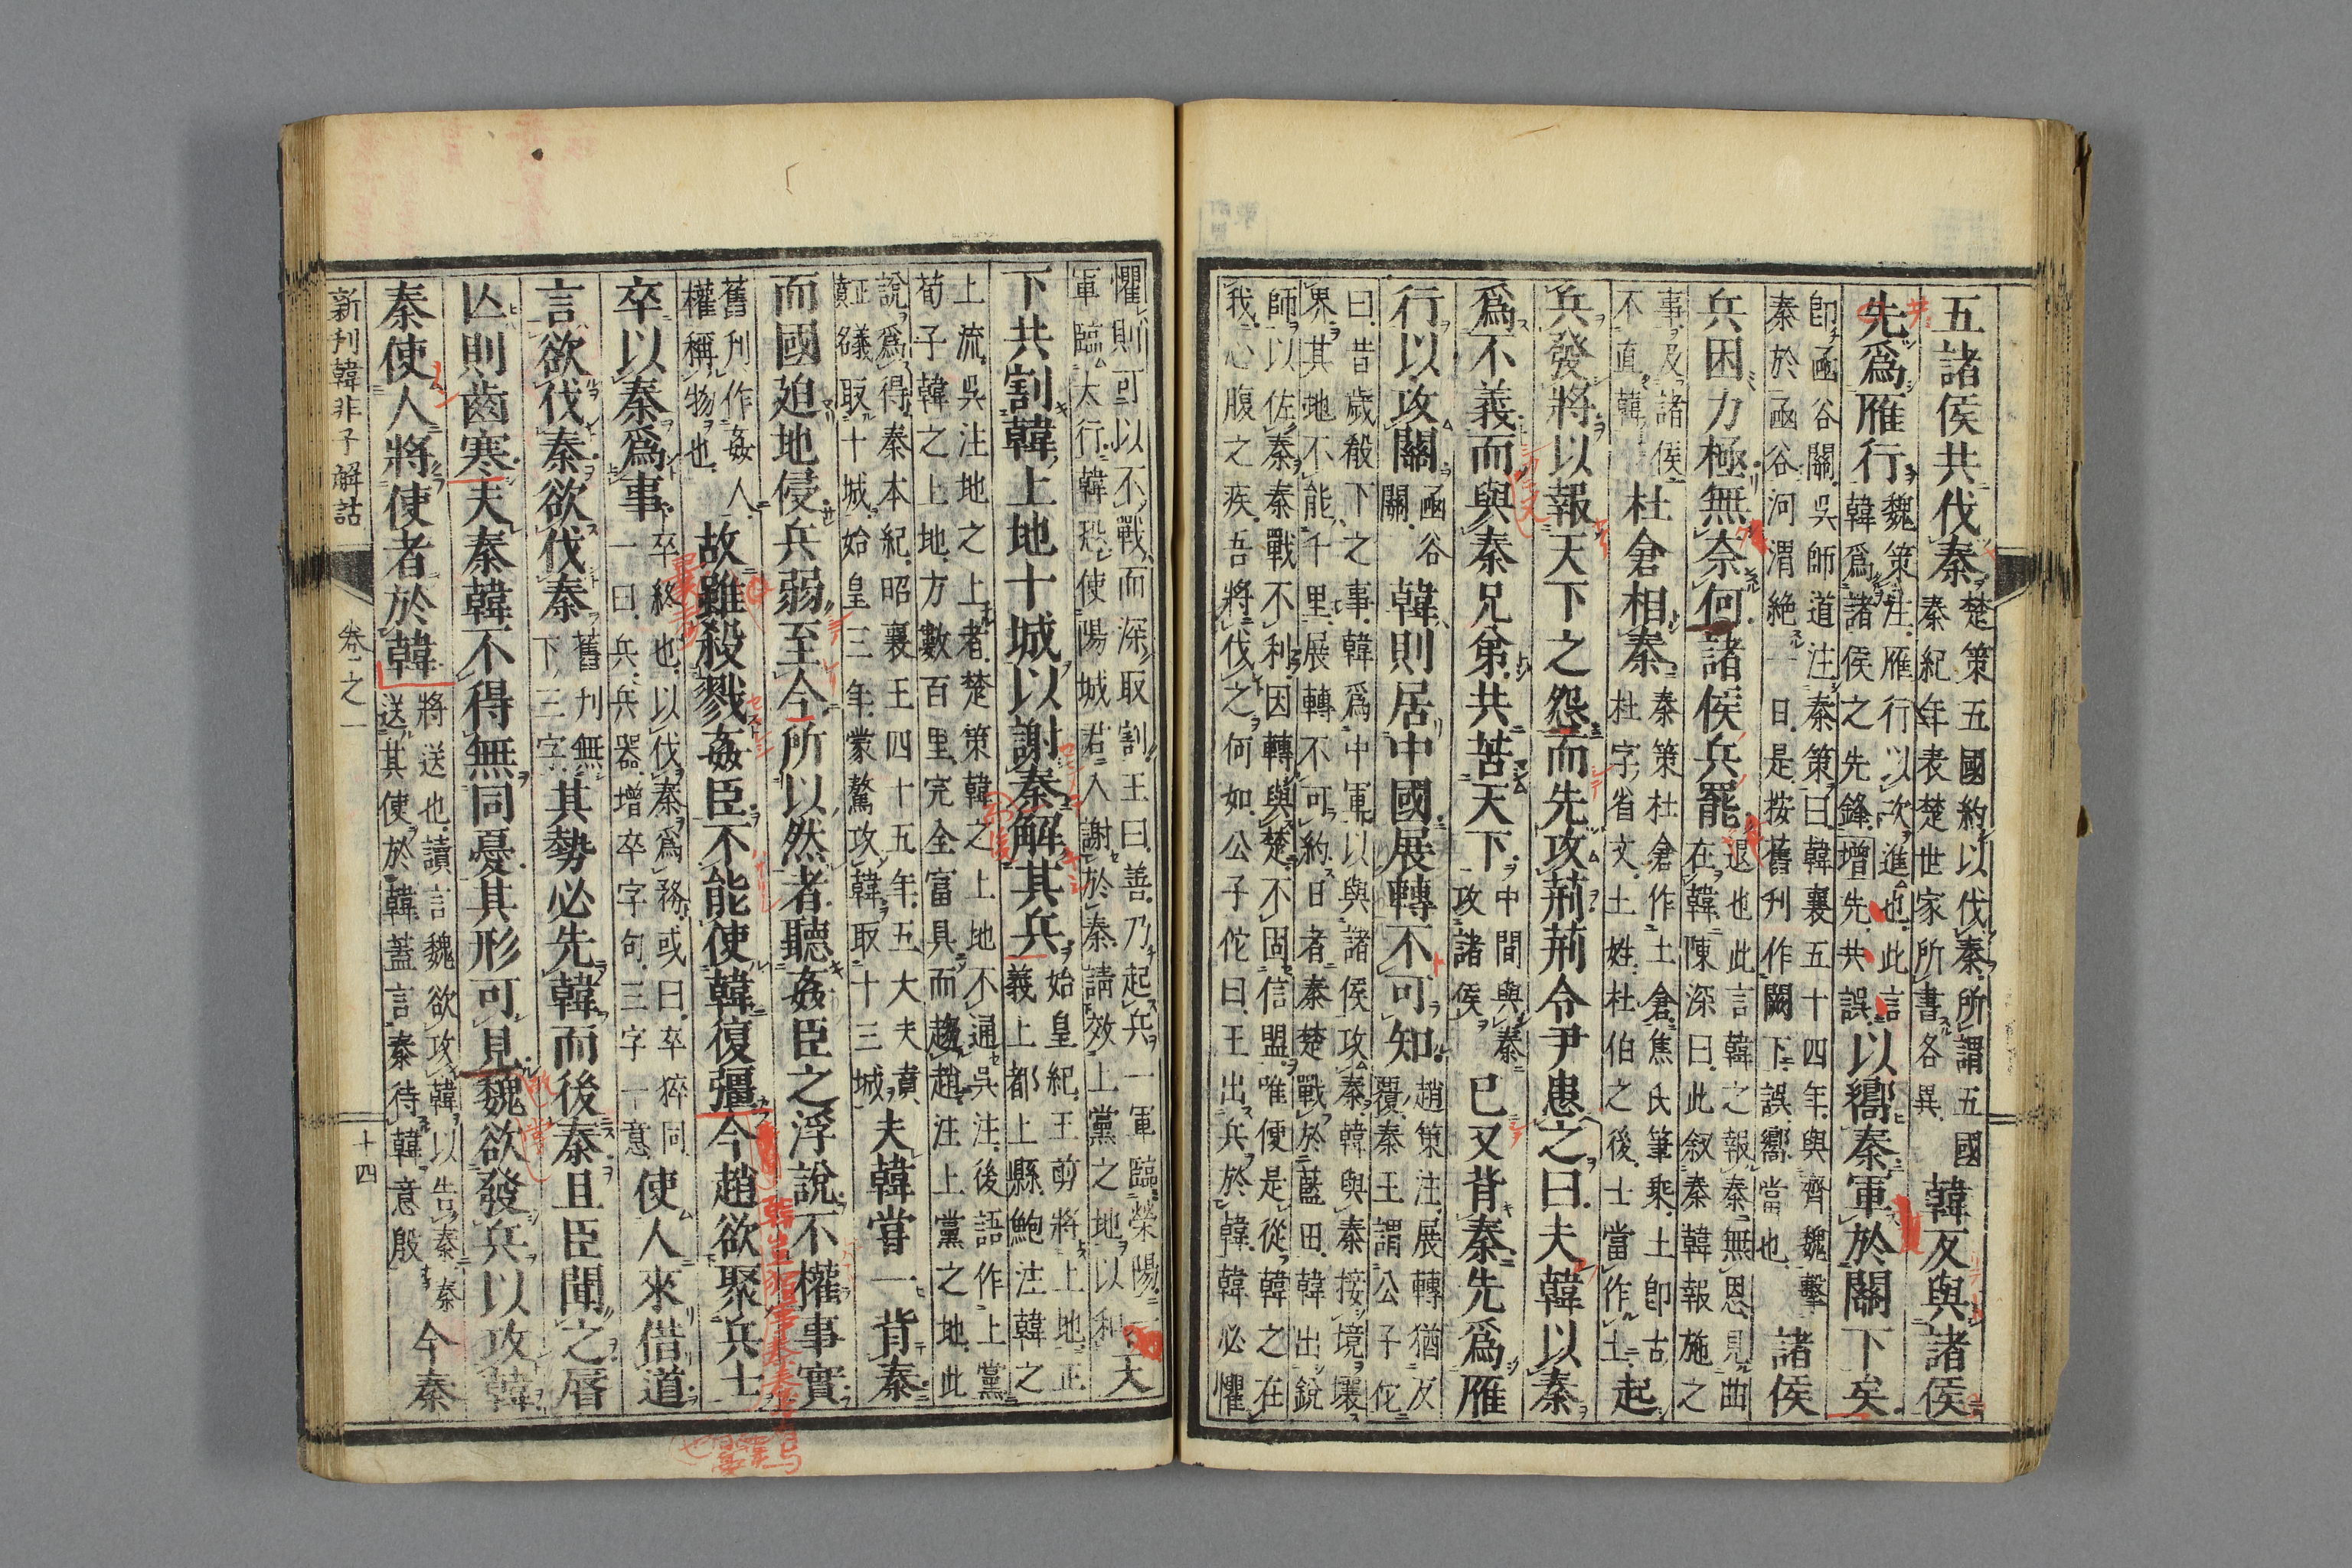 五諸侯共伐秦楚策五國約以伐秦所謂五國秦紀年表楚世家所書各異韓反與諸侯
先爲雁行魏策注雁行以次進也此言韓爲諸侯之先鋒增先共誤以嚮秦軍於關下矣
卽函谷關吳師道注秦策曰韓襄五十四年與齊魏擊秦於函谷河渭絶一日是按舊刊作闕下誤嚮當也諸侯
兵困力極無奈何諸侯兵罷退也此言韓之報秦無恩見曲在韓陳深曰此敘秦韓報施之
事及諸侯不直韓杜倉相秦秦策杜倉作土倉焦氏筆乘土卽古杜字省文土姓杜伯之後士當作土起
兵發將以報天下之怨而先攻荊荊令尹患之曰夫韓以秦
爲不義而與秦兄弟共苦天下中間與秦攻諸侯已又背秦先爲雁
行以攻關函谷關韓則居中國展轉不可知趙策注展轉猶反覆秦王謂公子佗
曰昔歲殽下之事韓爲中軍以與諸侯攻秦韓與秦接境壤界其地不能千里展轉不可約日者秦楚戰於藍田韓出銳
師以佐秦秦戰不利因轉與楚不固信盟唯便是從韓之在我心腹之疾吾將伐之何如公子佗曰王出兵於韓韓必懼
懼則可以不戰而深取割王曰善乃起兵一軍臨滎陽一軍臨太行韓恐使陽城君入謝於秦請效上黨之地以和天
下共割韓上地十城以謝秦解其兵始皇紀王翦將上地正義上都上縣鮑注韓之
上流吳注地之上者楚策韓之上地不通吳注後語作上黨荀子韓之上地方數百里完全富具而趨趙注上黨之地此
說爲得秦本紀昭襄王四十五年五大夫賁征礒取十城始皇三年蒙驁攻韓取十三城夫韓嘗一背秦
而國迫地侵兵弱至今所以然者聽姦臣之浮說不權事實
舊刊作姦人權稱物也故雖殺戮姦臣不能使韓復彊今趙欲聚兵士
卒以秦爲事卒終也以伐秦爲務或曰卒猝同一曰兵兵器增卒字句三字一意使人來借道
言欲伐秦欲伐秦舊刊無下三字其勢必先韓而後秦且臣聞之脣
亾則齒寒夫秦韓不得無同憂其形可見魏欲發兵以攻韓
秦使人將使者於韓將送也讀言魏欲攻韓以告秦秦送其使於韓蓋言秦待韓意殷今秦
新刊韓非子解詁 卷之一 十四